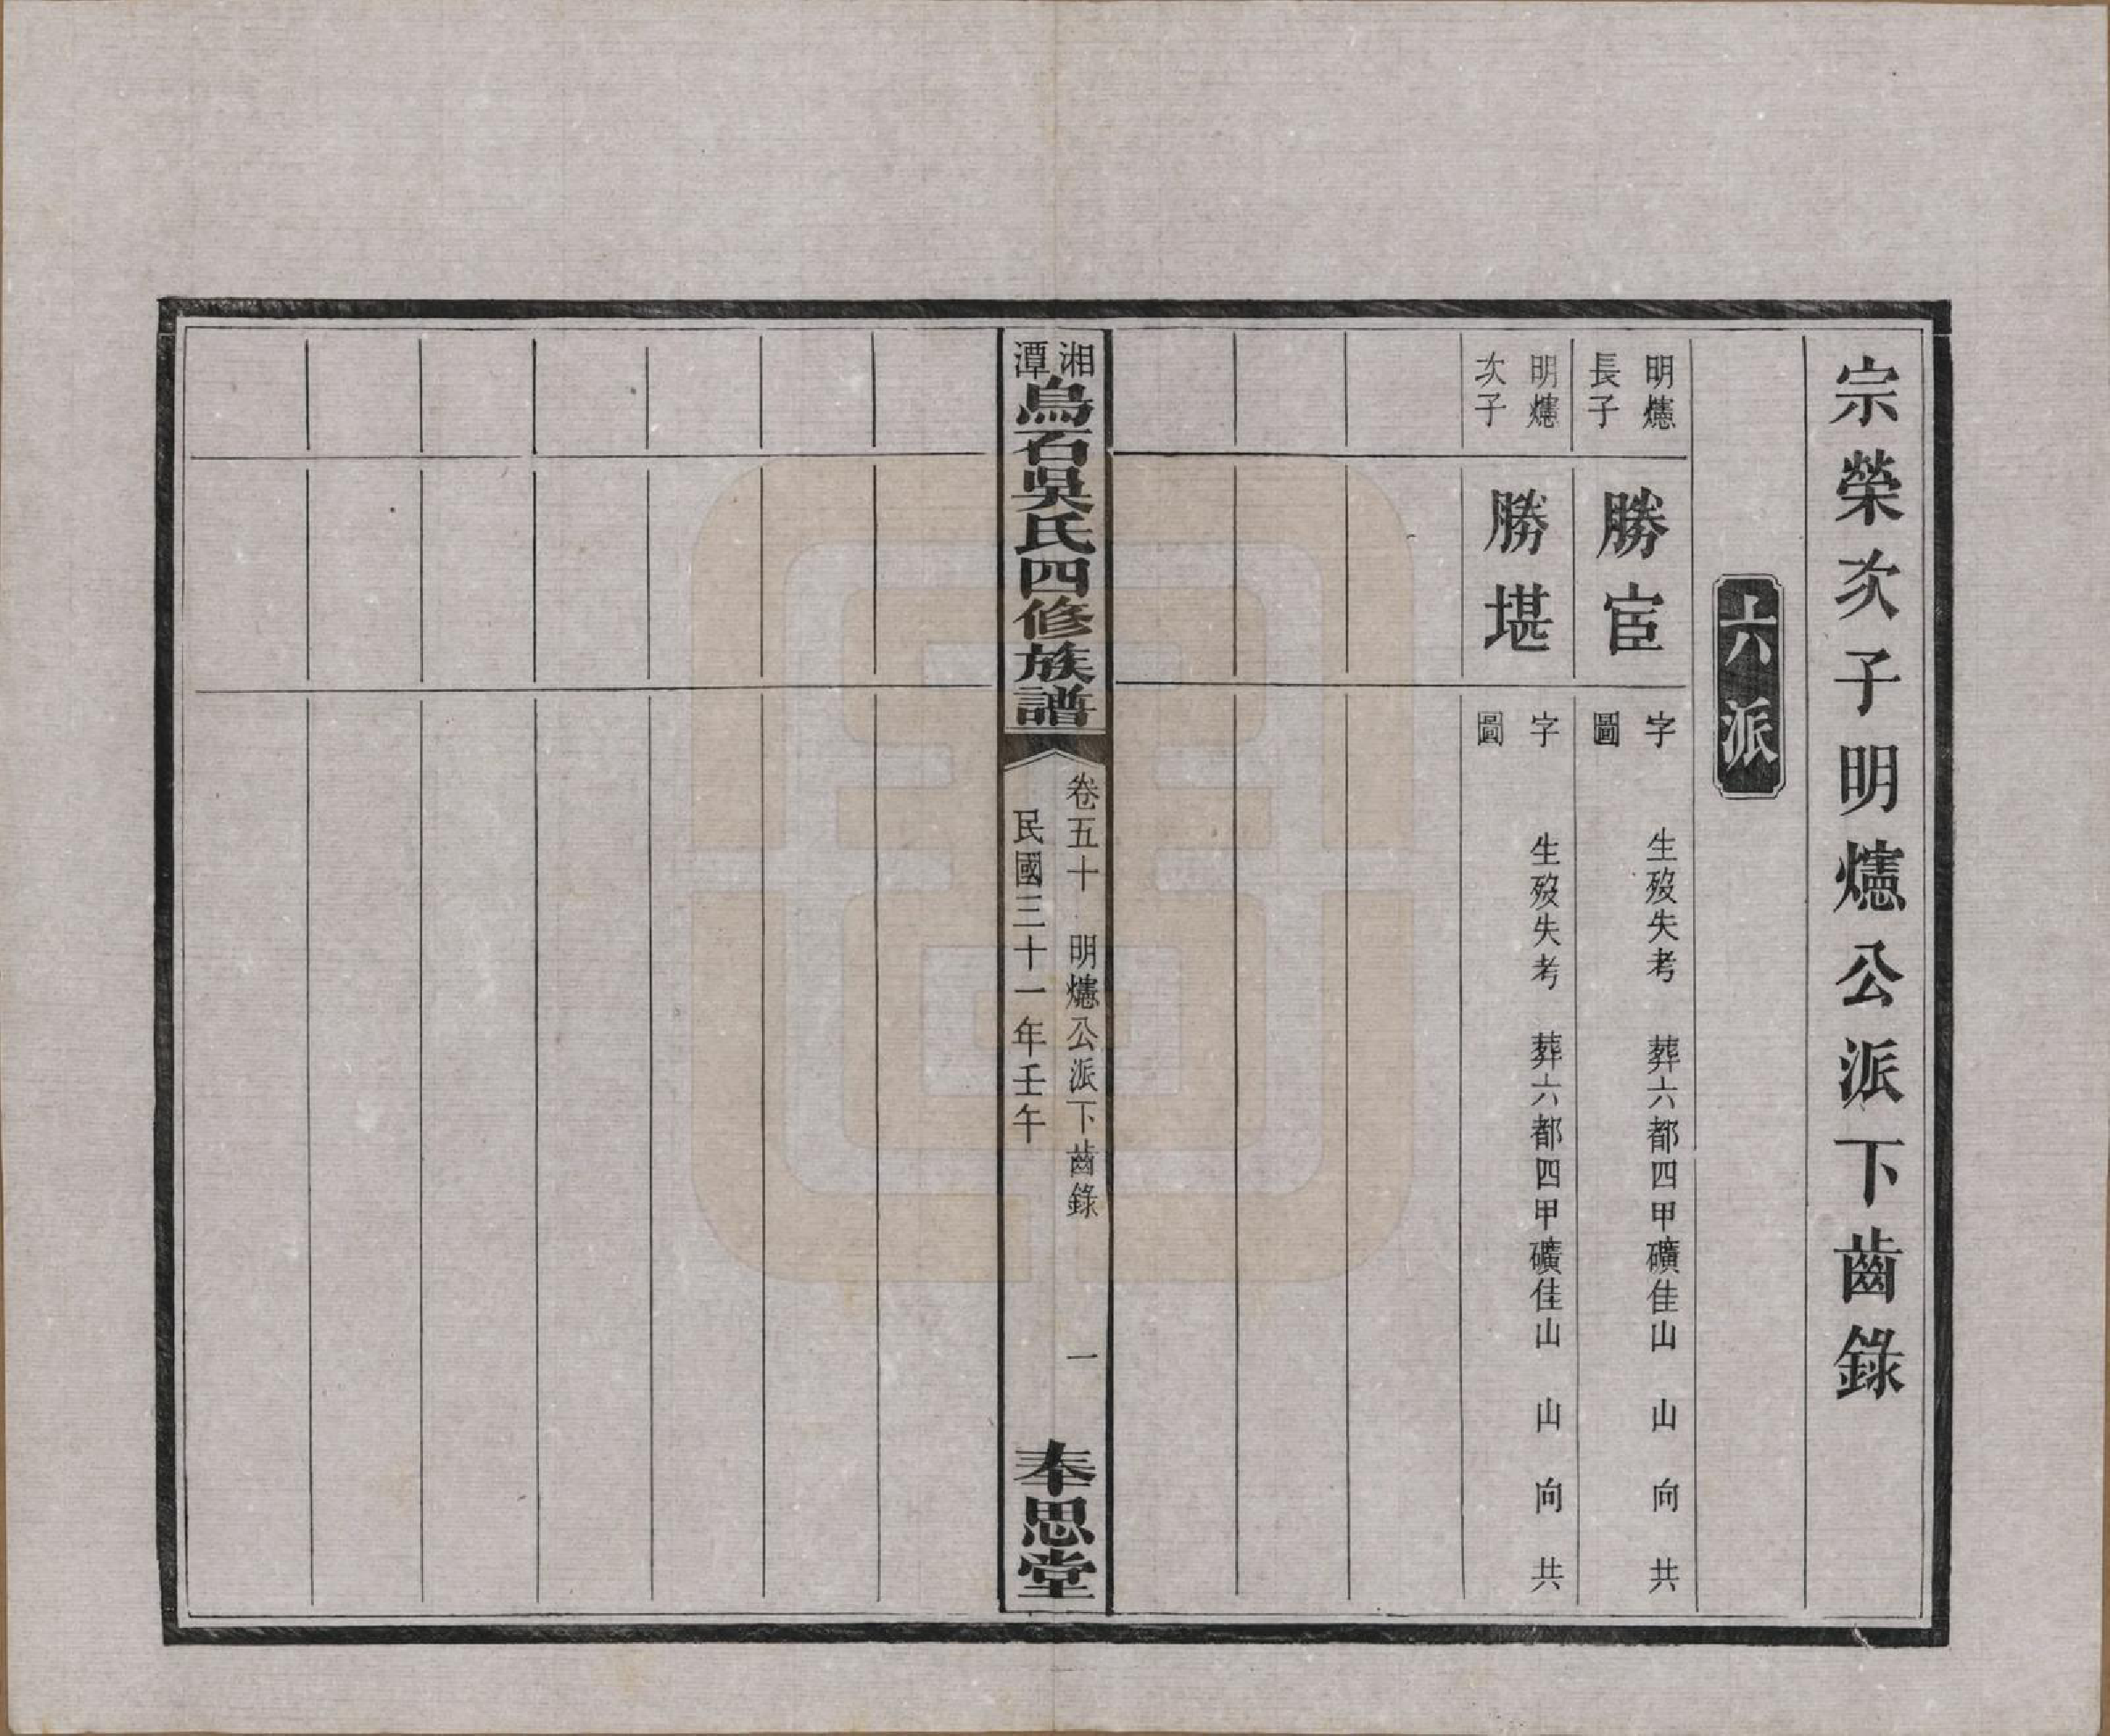 宗榮次子明爈公派下齒錄
六派
明爈
長子
勝宦
字 生歿失考 葬六都四甲礦佳山 山 向 共
圖
明爈
次子
勝堪
字 生歿失考 葬六都四甲礦佳山 山 向 共
圖
湘潭烏石吳氏四修族譜
卷五十 明爈公派下齒錄 一
民國三十一年壬午
奉思堂